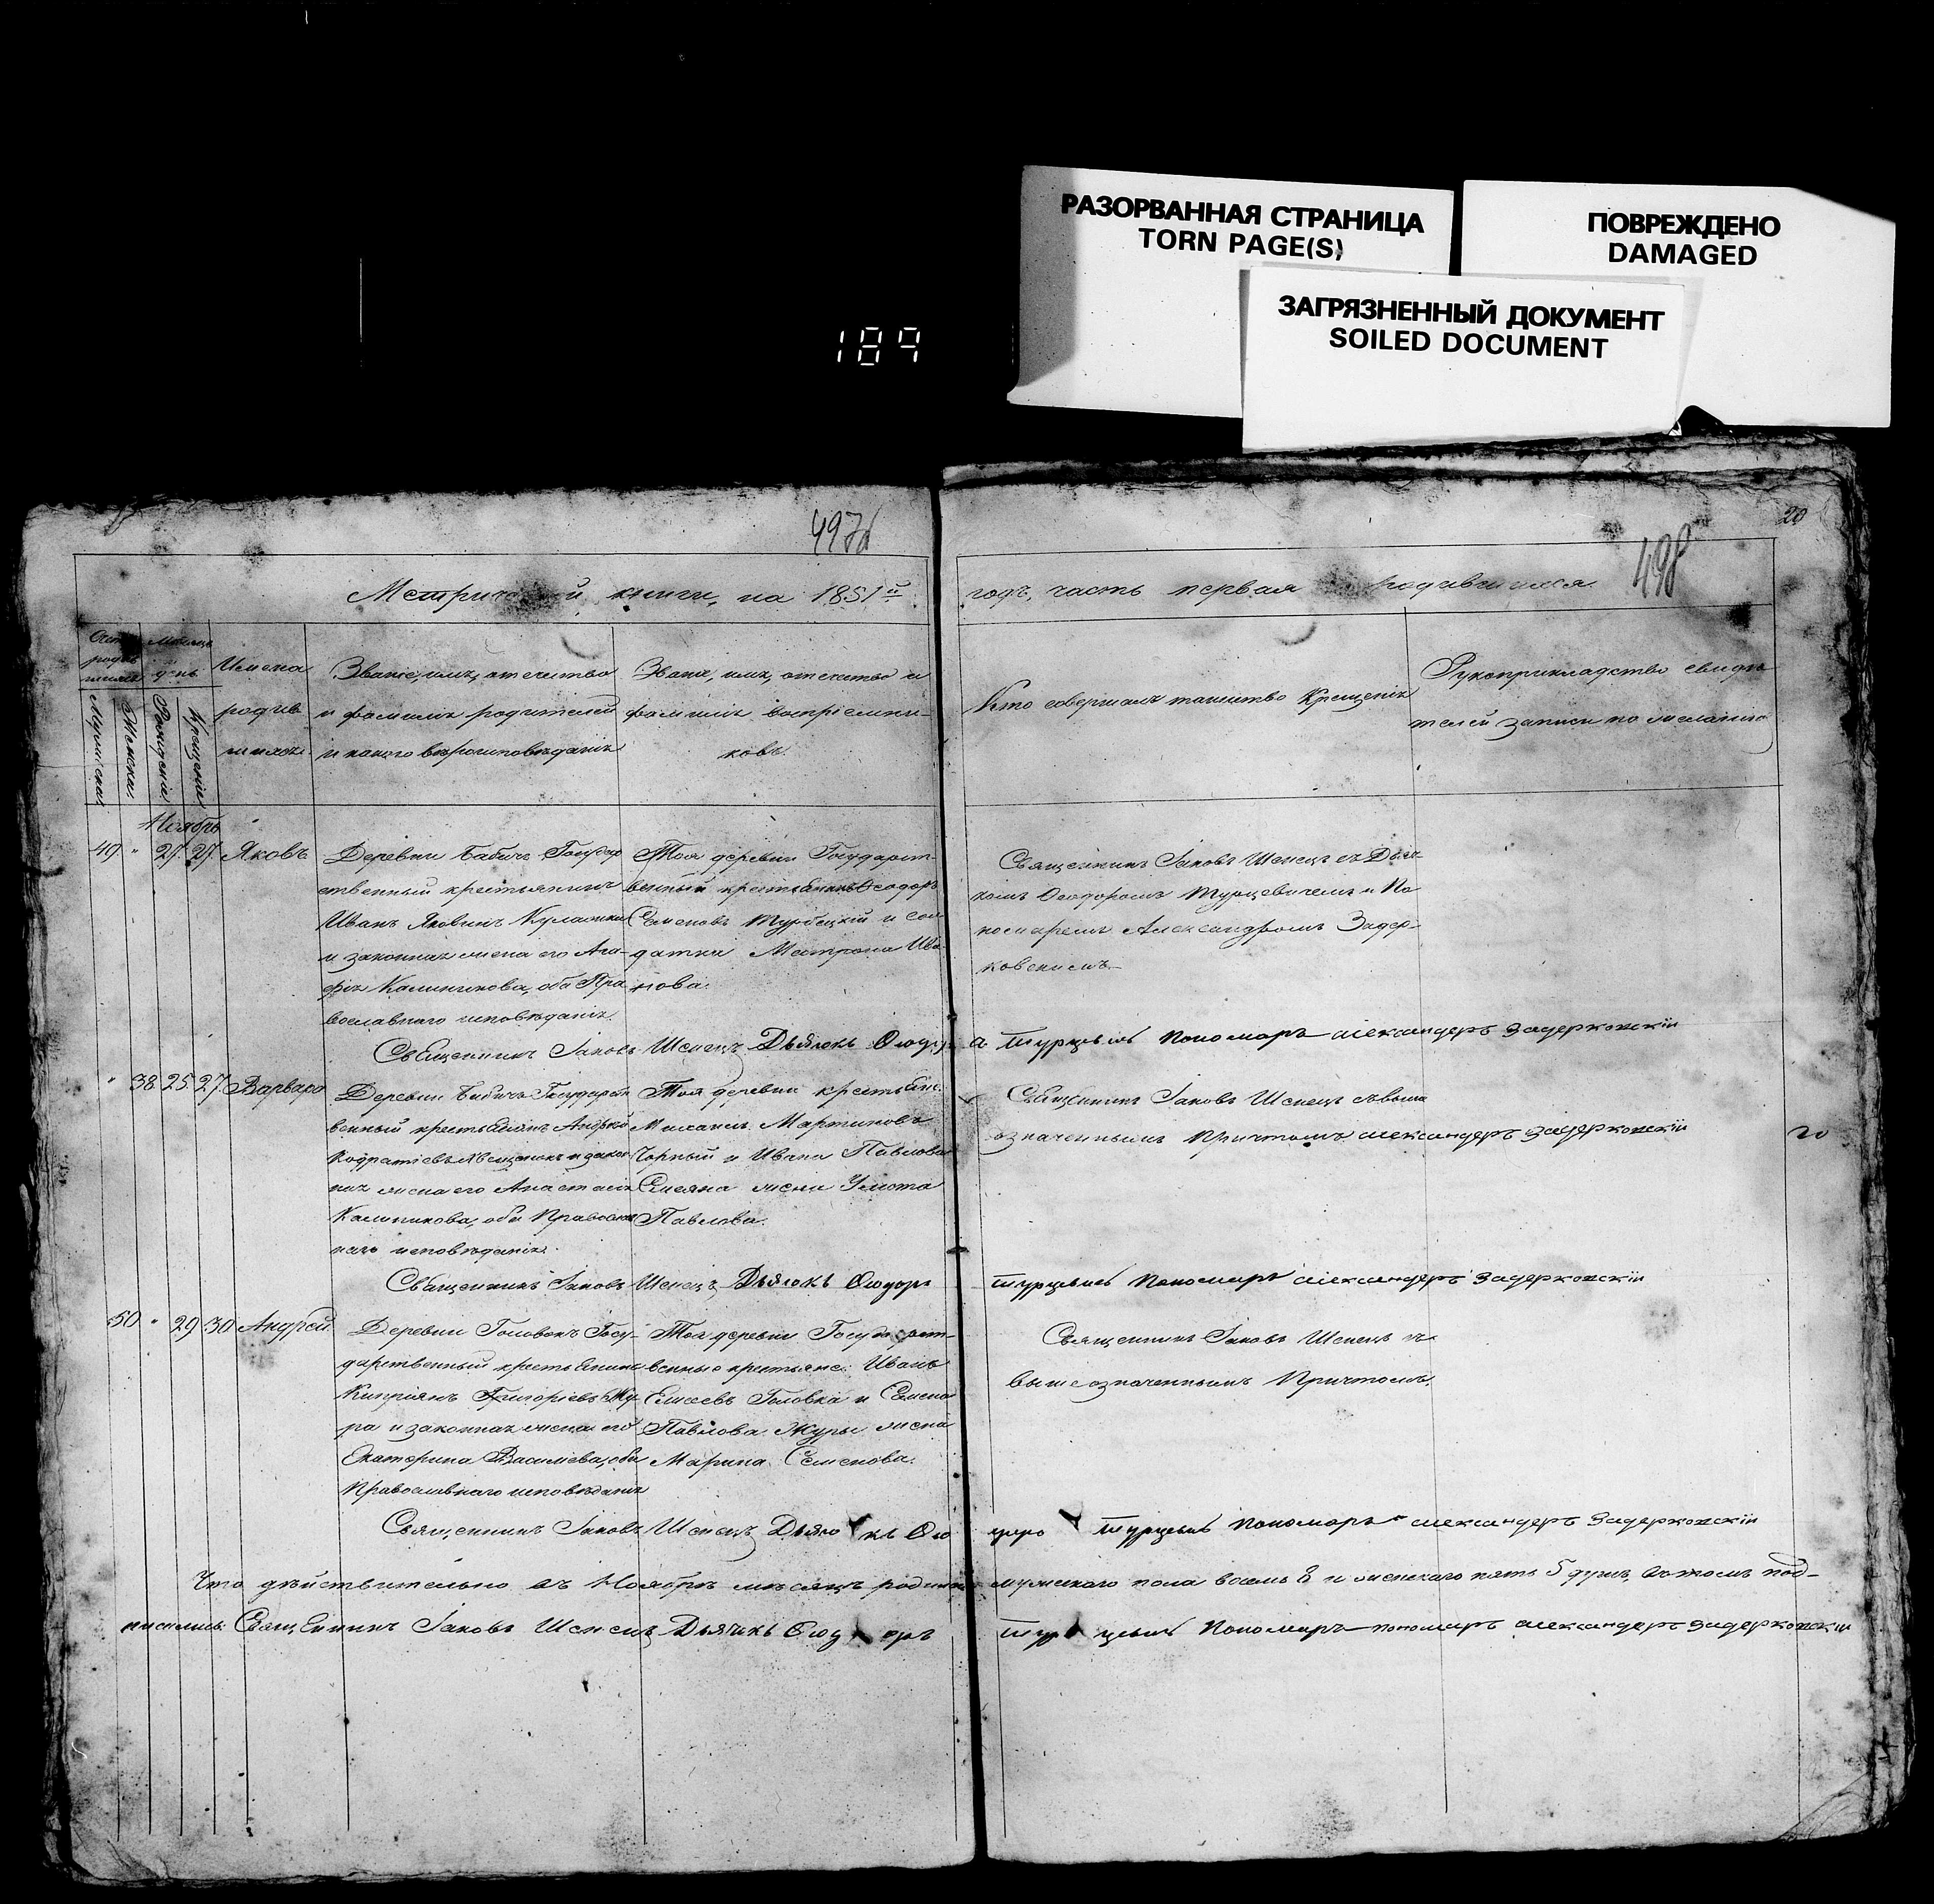 РАЗОРВАННАЯ СТРАНИЦА
TORN PAGE(S)
ПОВРЕЖДЕНО
DAMAGED
ЗАГРЯЗНЕННЫЙ ДОКУМЕНТ
SOILED DOCUMENT
189
497
498
20
книги, на 1851й
годъ, часть первая родившихся
Мѣсяцъ
день
Имена
родив
шихся
Мужеска
Женска
Рожденія
Крещенія
Званіе, имя, отчество
и фамилія родителей
и какого вѣроисповѣданія
Званіе, имя, отчество и
фамилія воспріемни-
ковъ
Кто совершалъ таинство Крещенія
Рукоприкладство свидѣ
телей записи по желанію
Ноябрь
49 " 27 27 Яковъ
Деревни Бабичъ Государ
ственный крестьянинъ
Иванъ Яковлевъ
и законная жена его Ага-
фія Калиникова, оба Пра
вославнаго исповѣданія.
Тоя деревни Государст-
венный крестьянинъ Ѳеодоръ
Семеновъ Турбецкій и сол
датка Матрона Ива
нова.
Священникъ Іаковъ Шепецъ съ Дьяч-
комъ Ѳеодоромъ Турцевичемъ и По
номаремъ Александромъ Задер-
ковскимъ
Священникъ Іаковъ Шепецъ Дьячокъ
Пономаръ александеръ Задерковскій
" 38 25 27 Варвара
Деревни Бабичъ Государст
венный крестьянинъ Андрей
Кодратіевъ и закон
ная жена его Анастасія
Калиникова, оба Православ
наго исповѣданія.
Тоя деревни крестьяне:
Михаилъ Мартиновъ
Чорный и Ивана Павлова
Смеяна жена
Павлова.
Священникъ Іаковъ Шепецъ съ выше
означеннымъ Причтомъ александеръ Задерковскій
20
Священникъ Іаковъ Шепецъ Дьячокъ Ѳеодоръ
Турцевичъ Пономаръ александеръ Задерковскій
50 " 29 30 Андрей
Деревни Головокъ Госу-
дарственный крестьянинъ
Кипріянъ Григоріевъ Жу
ра и законная жена его
Екатерина Василіева, оба
Православнаго исповѣданія
Тоя деревни Государст-
венные крестьяне: Иванъ
Елисеевъ Головка и Семена
Павлова Журы жена
Марина Семенова.
Священникъ Іаковъ Шепецъ съ
вышеозначеннымъ Причтомъ.
Священникъ Іаковъ Шепецъ
Турцевичъ Пономаръ александеръ Задерковскій
Что дѣйствительно въ Ноябрѣ мѣсяцѣ
мужескаго пола восемь 8 и женскаго пять 5 душъ, въ томъ под-
писались: Священникъ Іаковъ Шепецъ Дьячикъ
Пономаръ пономаръ александеръ Задерковскій